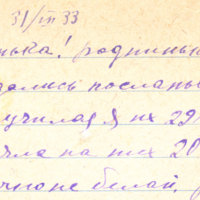 31/III 33
нька! родниньк
зались посланы
училая их 29
чла на них 20
чно не белай,